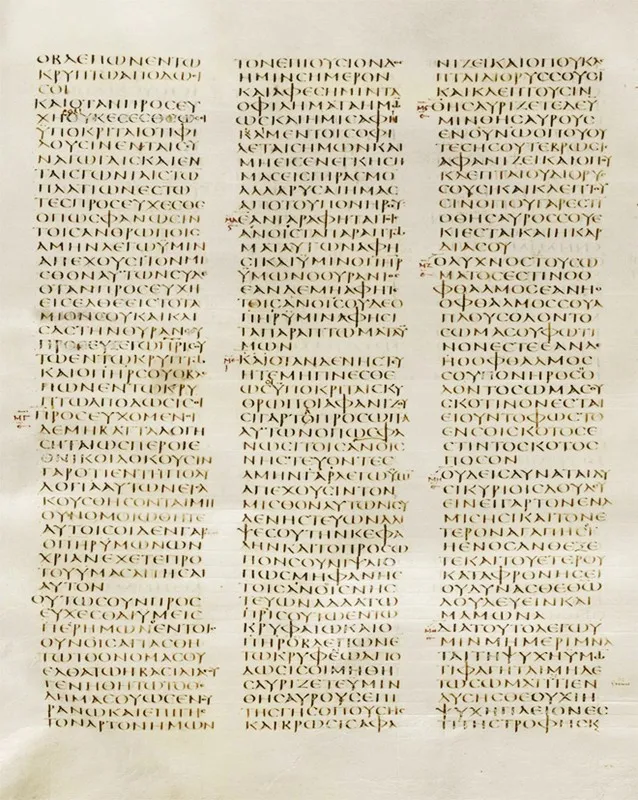 ΟΒΛΕΠΩΝΕΝΤΩ
ΚΡΥΠΤΩΑΠΟΔΩϹΙ
ϹΟΙ
ΚΑΙΟΤΑΝΠΡΟϹΕΥ
ΫΠΟΚΡΙΤΑΙΟΤΙΦΙ
ΛΟΥϹΙΝΕΝΤΑΙϹΥ
ΝΑΓΩΓΑΙϹΚΑΙΕΝ
ΤΑΙϹΓΩΝΙΑΙϹΤΩ
ΠΛΑΤΙΩΝΕϹΤΩ
ΤΕϹΠΡΟϹΕΥΧΕϹΘΕ
ΟΠΩϹΦΑΝΩϹΙΝ
ΤΟΙϹΑΝΘΡΩΠΟΙϹ
ΑΜΗΝΛΕΓΩΫΜΙΝ
ΑΠΕΧΟΥϹΙΤΟΝΜΙ
ϹΘΟΝΑΥΤΩΝϹΥΔΕ
ΟΤΑΝΠΡΟϹΕΥΧΗ
ΕΙϹΕΛΘΕΕΙϹΤΟΤΑ
ΜΙΟΝϹΟΥΚΑΙΚΛΙ
ϹΑϹΤΗΝΘΥΡΑΝϹΟΥ
ΤΩΕΝΤΩΚΡΥΠΤΩ
ΚΑΙΟΠΗΡϹΟΥΟΒΛΕ
ΠΩΝΕΝΤΩΚΡΥ
ΠΤΩΑΠΟΔΩϹΙϹΟΙ
ΜΓ
ΠΡΟϹΕΥΧΟΜΕΝΟΙ
ΔΕΜΗΒΑΤΤΑΛΟΓΗ
ϹΗΤΑΙΩϹΠΕΡΟΙΕ
ΘΝΙΚΟΙΔΟΚΟΥϹΙΝ
ΓΑΡΟΤΙΕΝΤΗΠΟΛΥ
ΛΟΓΙΑΑΥΤΩΝΕΙϹΑ
ΚΟΥϹΘΗϹΟΝΤΑΙΜΗ
ΟΥΝΟΜΟΙΩΘΗΤΕ
ΑΥΤΟΙϹΟΙΔΕΝΓΑΡ
ΟΠΗΡΫΜΩΝΩΝ
ΧΡΙΑΝΕΧΕΤΕΠΡΟ
ΤΟΥΥΜΑϹΑΙΤΗϹΑΙ
ΑΥΤΟΝ
ΟΥΤΩϹΟΥΝΠΡΟϹ
ΕΥΧΕϹΘΑΙΫΜΕΙϹ
ΠΕΡΗΜΩΝΕΝΤΟΙϹ
ΟΥΝΟΙϹΑΓΙΑϹΘΗ
ΤΩΤΟΟΝΟΜΑϹΟΥ
ΕΛΘΑΤΩΗΒΑϹΙΛΙΑϹΥ
ΓΕΝΗΘΗΤΩΤΟΘΕ
ΛΗΜΑϹΟΥΩϹΕΝΟΥ
ΡΑΝΩΚΑΙΕΠΙΓΗϹ
ΤΟΝΑΡΤΟΝΗΜΩΝ
ΤΟΝΕΠΙΟΥϹΙΟΝΔΟϹ
ΗΜΙΝϹΗΜΕΡΟΝ
ΚΑΙΑΦΕϹΗΜΙΝΤΑ
ΟΦΙΛΗΜΑΤΑΗΜΩ
ΩϹΚΑΙΗΜΙϹΑΦΗ
ΚΑΜΕΝΤΟΙϹΟΦΙ
ΛΕΤΑΙϹΗΜΩΝΚΑΙ
ΜΗΕΙϹΕΝΕΓΚΗϹΗ
ΜΑϹΕΙϹΠΙΡΑϹΜΟ
ΑΛΛΑΡΥϹΑΙΗΜΑϹ
ΑΠΟΤΟΥΠΟΝΗΡΟΥ
ΜΔ
ΕΑΝΓΑΡΑΦΗΤΑΙΤΟΙϹ
ΑΝΟΙϹΤΑΠΑΡΑΠΤΩ
ΜΑΤΑΑΥΤΩΝΑΦΗ
ϹΙΚΑΙΥΜΙΝΟΠΗΡ
ΫΜΩΝΟΟΥΡΑΝΙΟϹ
ΕΑΝΔΕΜΗΑΦΗΤΕ
ΤΟΙϹΑΝΟΙϹΟΥΔΕΟ
ΠΗΡΥΜΙΝΑΦΗϹΕΙ
ΤΑΠΑΡΑΠΤΩΜΑΤΑΫ
ΜΩΝ
ΚΑΙΟΤΑΝΔΕΝΗϹΤΕΥ
ΗΤΕΜΗΓΙΝΕϹΘΕ
ΩϹΟΙΫΠΟΚΡΙΤΑΙϹΚΥ
ΘΡΩΠΟΙΑΦΑΝΙΖΟΥ
ϹΙΓΑΡΤΟΠΡΟϹΩΠΟ
ΑΥΤΩΝΟΠΩϹΦΑ
ΝΩϹΙΤΟΙϹΑΝΟΙϹ
ΝΗϹΤΕΥΟΝΤΕϹ
ΑΜΗΝΓΑΡΛΕΓΩΫΜΙ
ΑΠΕΧΟΥϹΙΝΤΟΝ
ΜΙϹΘΟΝΑΥΤΩΝϹΥ
ΔΕΝΗϹΤΕΥΩΝΑΛΙ
ΨΕϹΟΥΤΗΝΚΕΦΑ
ΛΗΝΚΑΙΤΟΠΡΟϹΩ
ΠΟΝϹΟΥΝΙΨΑΙΟ
ΠΩϹΜΗΦΑΝΗϹ
ΤΟΙϹΑΝΟΙϹΝΗϹ
ΤΕΥΩΝΑΛΛΑΤΩ
ΠΡΙϹΟΥΤΩΕΝΤΩ
ΚΡΥΦΑΙΩΚΑΙΟ
ΠΗΡΟΒΛΕΠΩΝΕ
ΤΩΚΡΥΦΕΩΑΠΟ
ΔΩϹΙϹΟΙΜΗΘΗ
ϹΑΥΡΙΖΕΤΕΥΜΙΝ
ΘΗϹΑΥΡΟΥϹΕΠΙ
ΤΗϹΓΗϹΟΠΟΥϹΗϹ
ΚΑΙΒΡΩϹΙϹΑΦΑ
ΝΙΖΕΙΚΑΙΟΠΟΥΚΛΕ
ΠΤΑΙΔΙΟΡΥϹϹΟΥϹΙ
ΚΑΙΚΛΕΠΤΟΥϹΙΝ
ΘΗϹΑΥΡΙΖΕΤΕΔΕΥ
ΜΙΝΘΗϹΑΥΡΟΥϹ
ΕΝΟΥΝΩΟΠΟΥΟΥ
ΤΕϹΗϹΟΥΤΕΒΡΩϹΙϹ
ΑΦΑΝΙΖΕΙΚΑΙΟΠΟΥ
ΚΛΕΠΤΑΙΟΥΔΙΟΡΥϹ
ϹΟΥϹΙΚΑΙΚΛΕΠΤΟΥ
ϹΙΝΟΠΟΥΓΑΡΕϹΤΙ
ΟΘΗϹΑΥΡΟϹϹΟΥΕ
ΚΙΕϹΤΑΙΚΑΙΗΚΑΡ
ΔΙΑϹΟΥ
ΜΖ
ΟΛΥΧΝΟϹΤΟΥϹΩ
ΜΑΤΟϹΕϹΤΙΝΟΟ
ΦΘΑΛΜΟϹΕΑΝΗΟ
ΟΦΘΑΛΜΟϹϹΟΥΑ
ΠΛΟΥϹΟΛΟΝΤΟ
ϹΩΜΑϹΟΥΦΩΤΙ
ΝΟΝΕϹΤΕΕΑΝΔΕ
ΗΟΟΦΘΑΛΜΟϹ
ϹΟΥΠΟΝΗΡΟϹΟ
ΛΟΝΤΟϹΩΜΑϹΟΥ
ϹΚΟΤΙΝΟΝΕϹΤΑΙ
ΕΙΟΥΝΤΟΦΩϹΤΟ
ΕΝϹΟΙϹΚΟΤΟϹΕ
ϹΤΙΝΤΟϹΚΟΤΟϹ
ΠΟϹΟΝ
ΜΗ
ΟΥΔΕΙϹΔΥΝΑΤΑΙΔΥ
ϹΙΚΥΡΙΟΙϹΔΟΥΛΕΥ
ΕΙΝΕΙΓΑΡΤΟΝΕΝΑ
ΜΙϹΗϹΙΚΑΙΤΟΝΕ
ΤΕΡΟΝΑΓΑΠΗϹΕΙ
ΗΕΝΟϹΑΝΘΕΞΕ
ΤΕΚΑΙΤΟΥΕΤΕΡΟΥ
ΚΑΤΑΦΡΟΝΗϹΕΙ
ΟΥΔΥΝΑϹΘΕΘΩ
ΔΟΥΛΕΥΕΙΝΚΑΙ
ΜΑΜΩΝΑ
ΜΘ
ΔΙΑΤΟΥΤΟΛΕΓΩΫ
ΜΙΝΜΗΜΕΡΙΜΝΑ
ΤΑΙΤΗΨΥΧΗΥΜΩ
ΤΙΦΑΓΗΤΑΙΜΗΔΕ
ΤΩϹΩΜΑΤΙΤΙΕΝ
ΔΥϹΗϹΘΕΟΥΧΙΗ
ΨΥΧΗΠΛΕΙΟΝΕϹ
ΤΙΤΗϹΤΡΟΦΗϹΚ